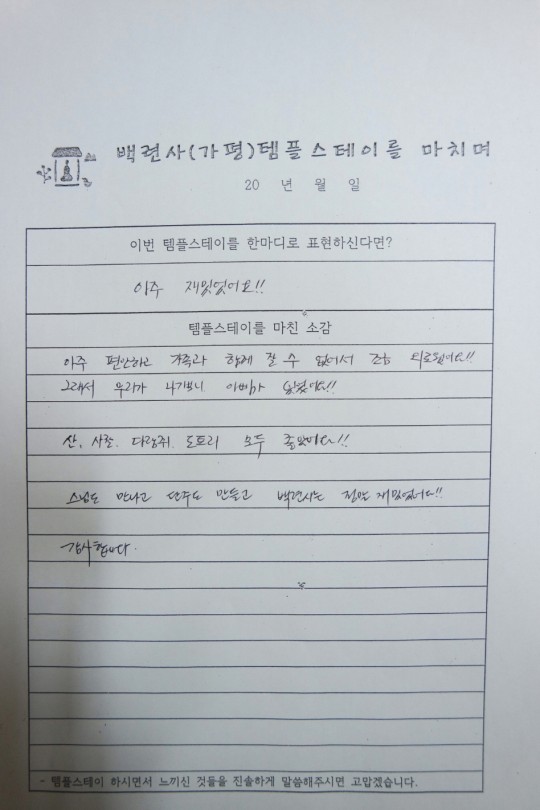 백련사(가평)템플스테이를 마치며
20 년 월 일
이번 템플스테이를 한마디로 표현하신다면?
아주 재밌었어요!!
템플스테이를 마친 소감
아주 편안하고 가족과 함께 잘 수 없어서 조금
그래서 우리가 아빠가
산, 사찰, 다람쥐, 도토리 모두 좋았어요!!
스님도 만나고 단주도 만들고 백련사는 정말 재밌었어요!!
감사합니다.
- 템플스테이 하시면서 느끼신 것들을 진솔하게 말씀해주시면 고맙겠습니다.